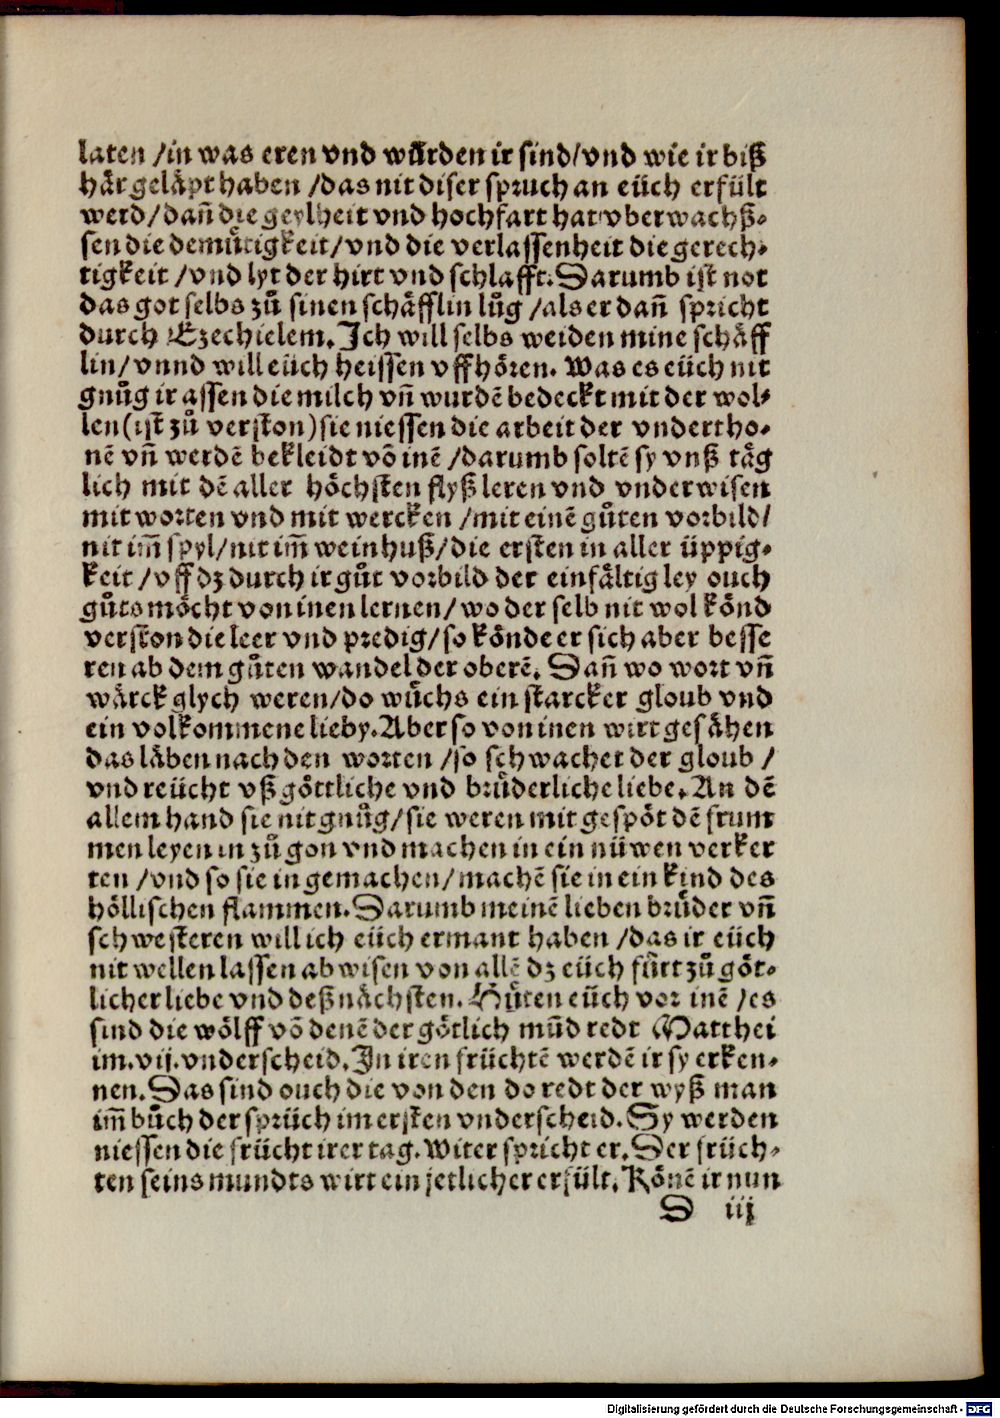 laten /in was eren vnd wůrden ir sind/vnd wie ir biß
här geläpt haben /das nit diser spruch an eüch erfült
werd/dañ die geylheit vnd hochfart hat vberwachß⸗
sen die demůtigkeit/vnd die verlassenheit die gerech⸗
tigkeit /vnd lyt der hirt vnd schlafft. Darumb ist not
das got selbs zů sinen schäfflin lůg /als er dañ spricht
durch Ezechielem. Ich will selbs weiden mine schäff
lin/vnnd will eüch heissen vffhören. Was es eüch nit
gnůg ir assen die milch vñ wurdē bedeckt mit der wol⸗
len(ist zů verston)sie niessen die arbeit der vndertho⸗
nē vñ werdē bekleidt vō inē /darumb soltē sy vnß täg
lich mit dē aller höchsten flyß leren vnd vnderwisen
mit worten vnd mit wercken /mit einē gůten vorbild/
nit im̄ spyl/nit im̄ weinhuß/die ersten in aller üppig⸗
keit /vff dz durch ir gůt vorbild der einfältig ley ouch
gůts möcht von inen lernen/wo der selb nit wol könd
verston die leer vnd predig/so könde er sich aber besse
ren ab dem gůten wandel der oberē. Dañ wo wort vñ
wärck glych weren/do wůchs ein starcker gloub vnd
ein volkommene lieby. Aber so von inen wirt gesähen
das läben nach den worten /so schwachet der gloub /
vnd reücht vß göttliche vnd brůderliche liebe. An dē
allem hand sie nit gnůg/sie weren mit gespöt dē frum
men leyen in zů gon vnd machen in ein nüwen verker
ten /vnd so sie in gemachen/machē sie in ein kind des
höllischen flammen. Darumb meinē lieben brůder vñ
schwesteren will ich eüch ermant haben /das ir eüch
nit wellen lassen abwisen von allē dz eüch fůrt zů göt⸗
licher liebe vnd deß nächsten. Hůten eüch vor inē /es
sind die wölff vō denē der götlich mūd redt Matthei
im.vij.vnderscheid. In iren früchtē werdē ir sy erken⸗
nen. Das sind ouch die von den do redt der wyß man
im̄ bůch der sprüch im ersten vnderscheid. Sy werden
niessen die frücht irer tag. Witer spricht er. Der früch⸗
ten seins mundts wirt ein jetlicher erfült. Könē ir nun
D iij
Digitalisierung gefördert durch die Deutsche Forschungsgemeinschaft - DFG